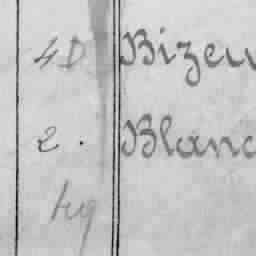 4D Bizeu
2. Blanc